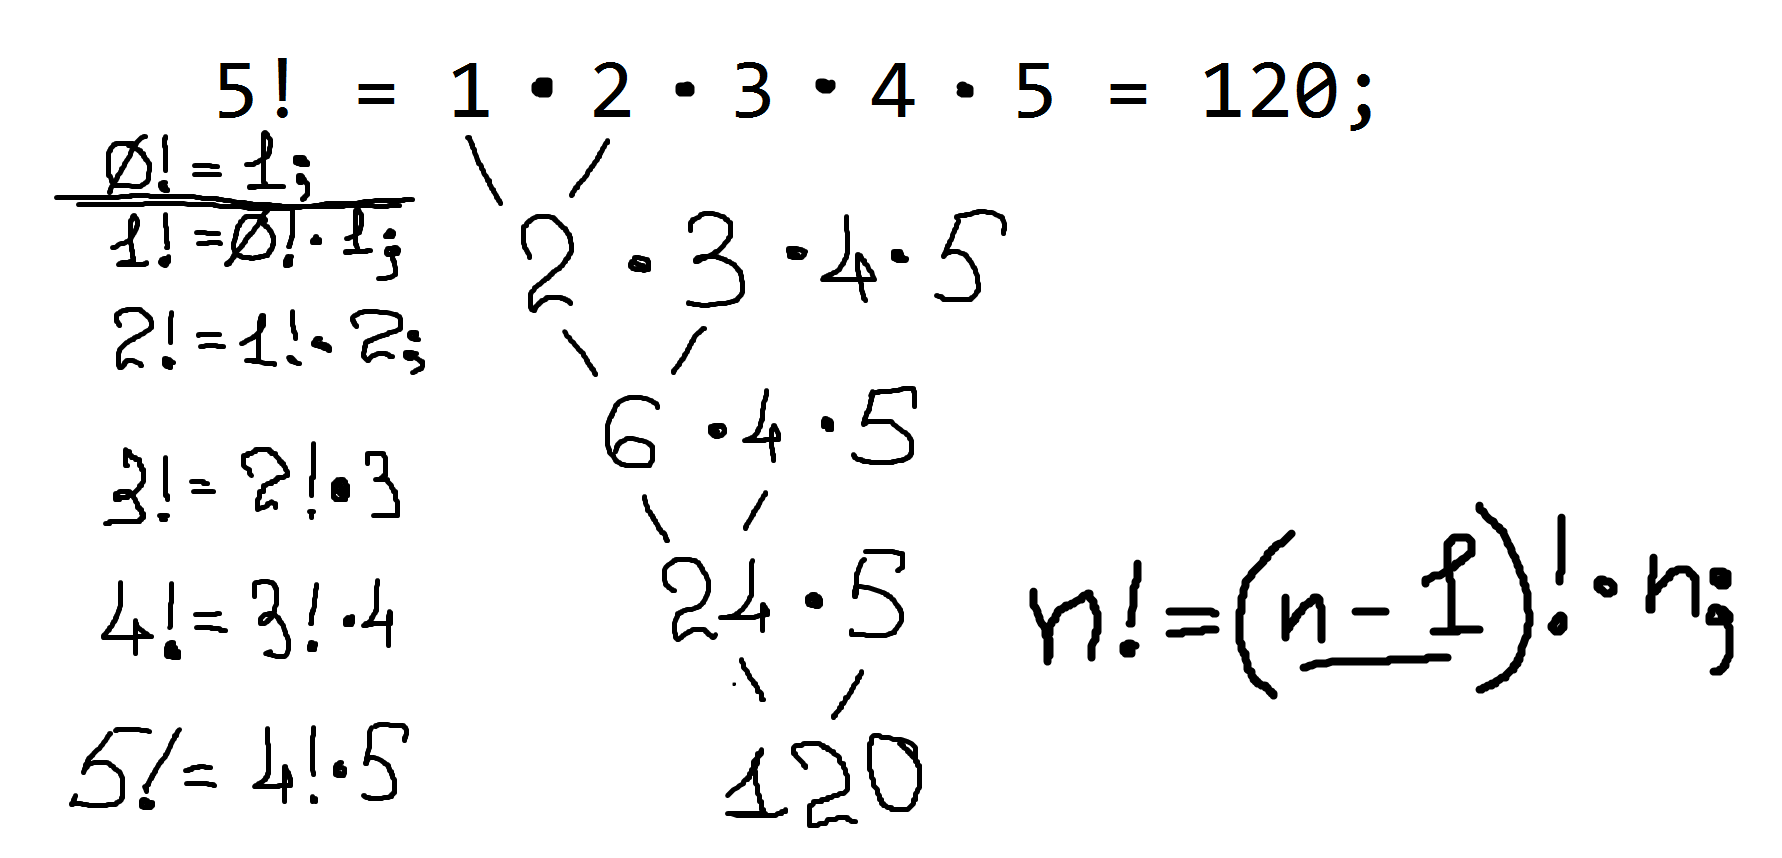 5! = 1 · 2 · 3 · 4 · 5 = 120;
0! = 1;
1! = 0! · 1;
2! = 1! · 2;
3! = 2! · 3
4! = 3! · 4
5! = 4! · 5
2 · 3 · 4 · 5
6 · 4 · 5
24 · 5
120
n! = (n - 1)! · n;